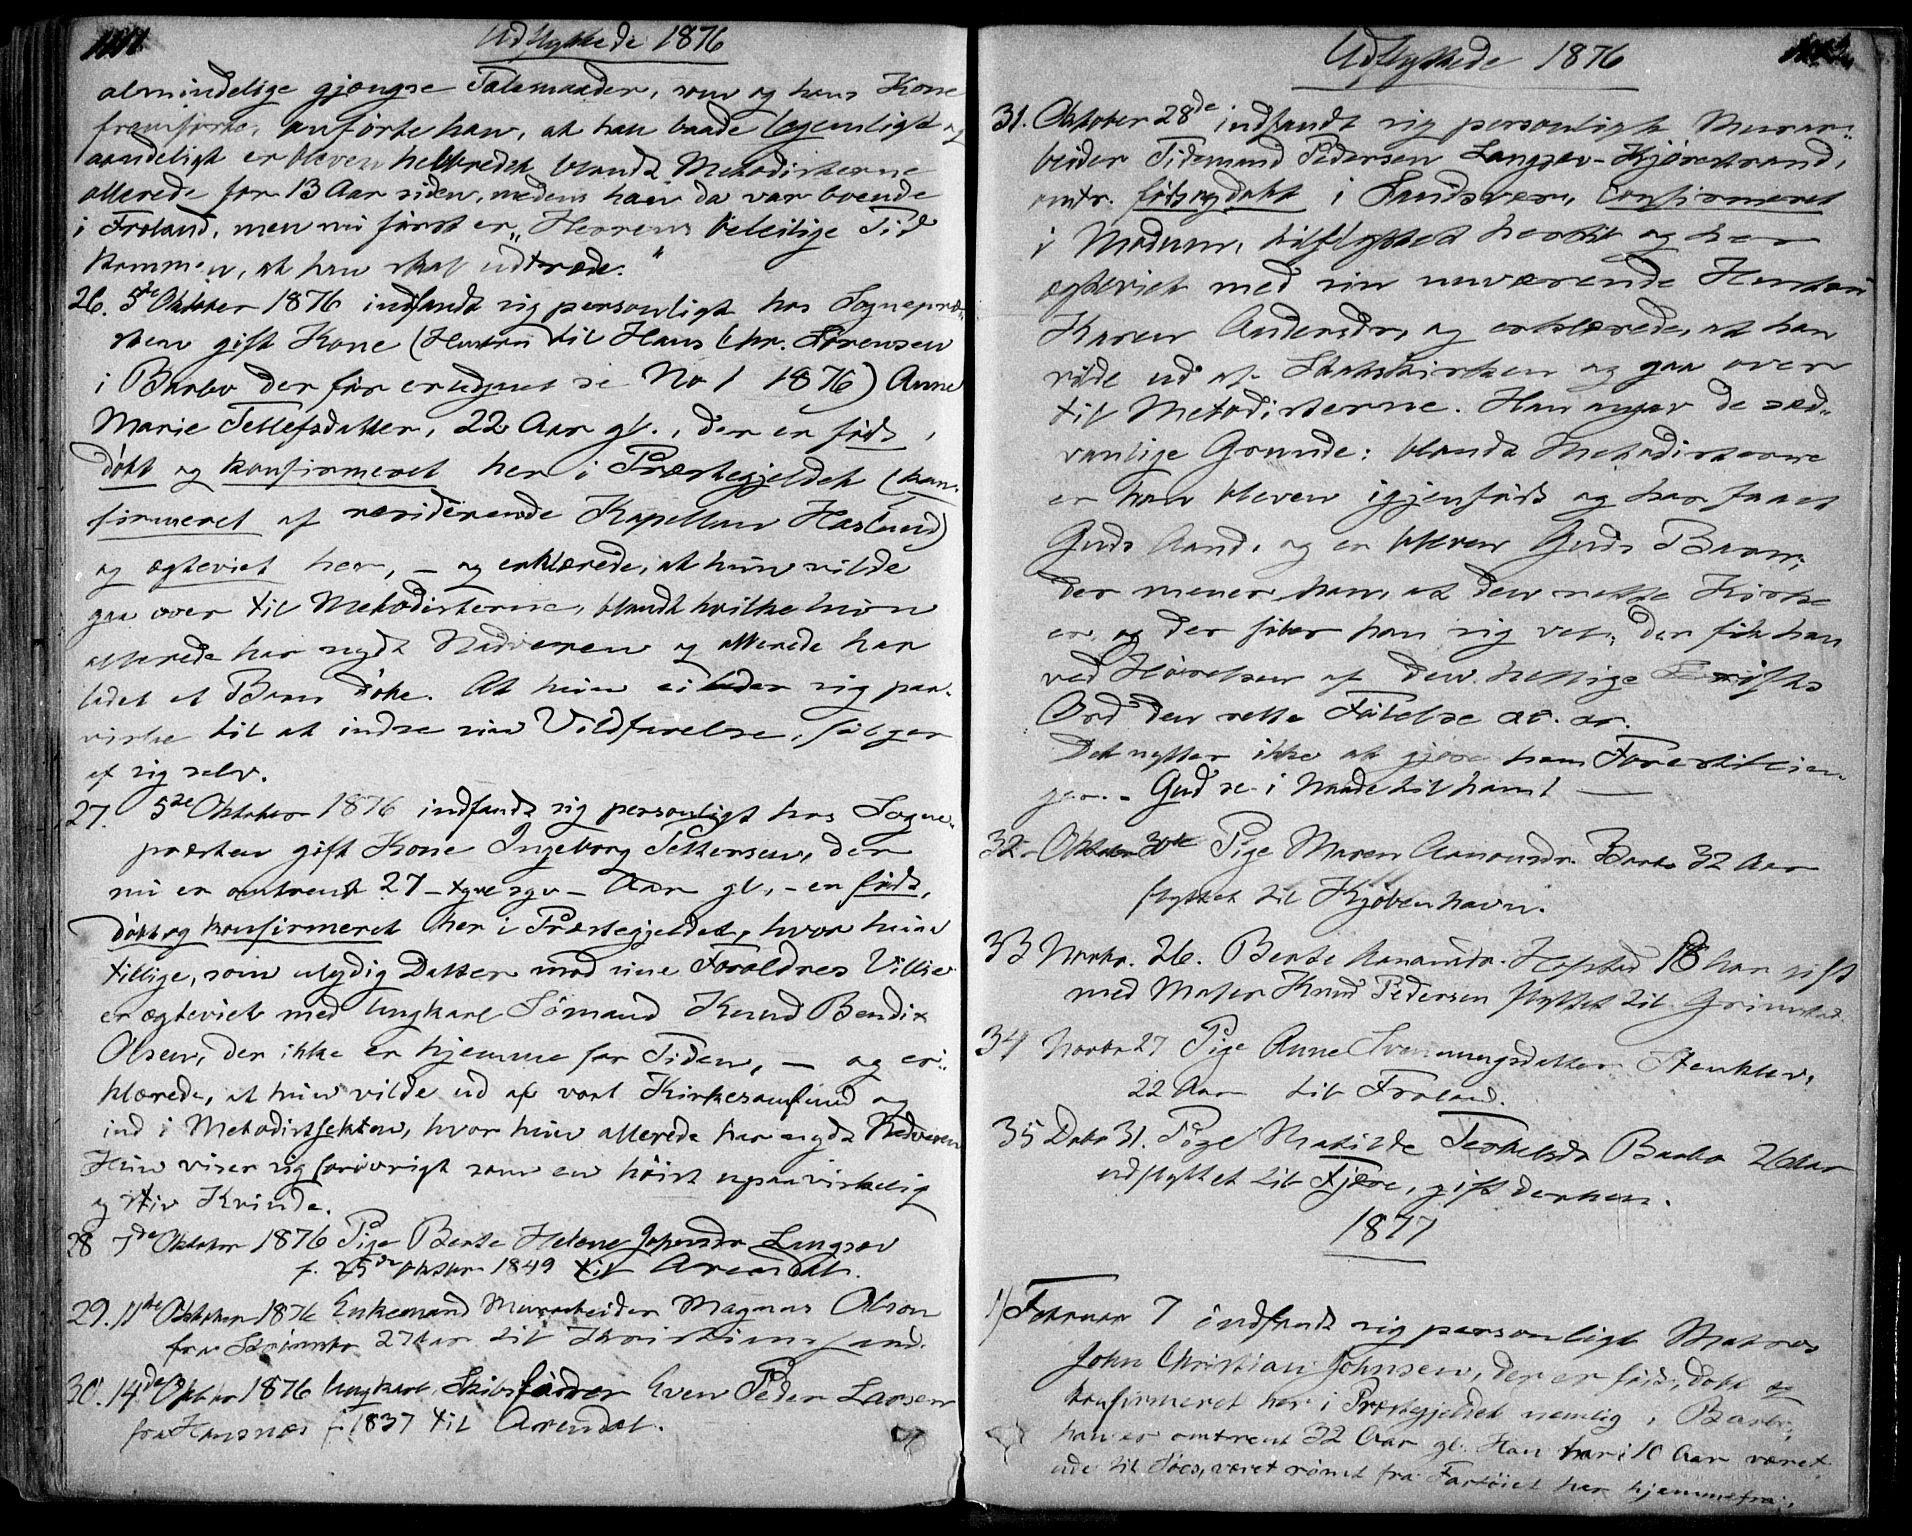 Udflyttede 1876
almindelige gjængse Talemaader, som og hans Kone
fremførte, anførte han, at han baade legemligt og
aandeligt er bleven helbredet blandt Methodisterne
allerede for 13 Aar siden, medens han da var boende
i Froland, men nu først er "Herrens beleilige Tid
kommen, at han skal udtræde."
26. 5te Oktober 1876 indfandt sig personligt hos Sognepræ-
sten gift Kone (Hustru til Hans Chr. Sørensen
i Barbo der før er udmeldt se No 1 1876) Anne
Marie Tellefsdatter, 22 Aar gl., der er født,
døbt og konfirmeret her i Præstegjeldet (kon-
firmeret af residerende Kapellan Haslund)
og ægteviet her, – og erklærede, at hun vilde
gaa over til Methodisterne, blandt hvilke hun
allerede har nydt Nadveren og allerede har
ladet et Barn døbe. At hun ei lader sig paa-
virke til at indse sin Vildfarelse, følger
af sig selv.
27. 5te Oktober 1876 indfandt sig personligt hos Sogne-
præsten gift Kone Ingeborg Tellefsen, der
nu er omtrent 27 – tyve syv – Aar gl., – er født,
døbt og konfirmeret her i Præstegjeldet, hvor hun
tillige, som ulydig Datter mod sine Forældres Villie
er ægteviet med Ungkarl Sømand Knud Bendix
Olsen, der ikke er hjemme for Tiden, – og er-
klærede, at hun vilde ud af vort Kirkesamfund og
ind i Methodistsekten, hvor hun allerede har nydt Nadveren
Hun viser sig forøvrigt som en høist upaavirkelig
og stiv Kvinde.
28 7de Oktober 1876 Pige Berte Helene Jepersdr Lungsøe
f. 25de Oktbr 1849 til Arendal.
29. 11te Oktober 1876 Enkemand Murarbeider Magnus Olson
fra Strømsbo 27 Aar til Kristianssand.
30. 14de Oktbr 1876 Ungkarl, Skibsfører Even Peder Larsen
fra Hansnæs f. 1837 til Arendal.
Udflyttede 1876
31. Oktober 28de indfandt sig personligt Murar-
beider Tidemand Pedersen Langsæv-Kjørestrand,
omtr. født og døbt i Sandsvær, confirmeret
i Modum, tilflyttet herhid og her
ægteviet med sin nuværende Hustru
Karen Andersdr, og erklærede, at han
vilde ud af Statskirken og gaa over
til Metodisterne. Han angav de sæd-
vanlige Grunde: blandt Methodisterne
er han bleven igjenfødt og har faaet
Guds Aand, og er bleven Guds Barn;
der mener han, at den rette Kirke
er, og der føler han sig vel; der fik han
ved Hørelsen af den hellige Skrifts
Ord den rette Følelse o.s.v.
Det nytter ikke at gjøre ham Forestillin-
ger. – Gud se i Naade til ham! –
32 – Oktober 30te Pige Maren Aanonsdr. Barbo 32 Aar
flyttet til Kjøbenhavn.
33 Novbr. 26. Berte Aanonsdr. Hofstad 18 Aar gift
med Matros Knud Pedersen flyttet til Grimstad
34 Novbr 27 Pige Anne Svenningsdatter Stenklev,
22 Aar til Froland.
35 Dcbr 31. Pige Mathilde Terkelsdr Barbo 26 Aar
udflyttet til Fjære, gift derhen.
1877
1/ Februar 7 indfandt sig personligt Matros
John Christian Johnsen, der er født, døbt og
konfirmeret her i Præstegjeldet nemlig i Barbo,
han er omtrent 32 Aar gl. Han har i 10 Aar været
ude til Søes, været rømt fra Fartøiet her hjemmefra,